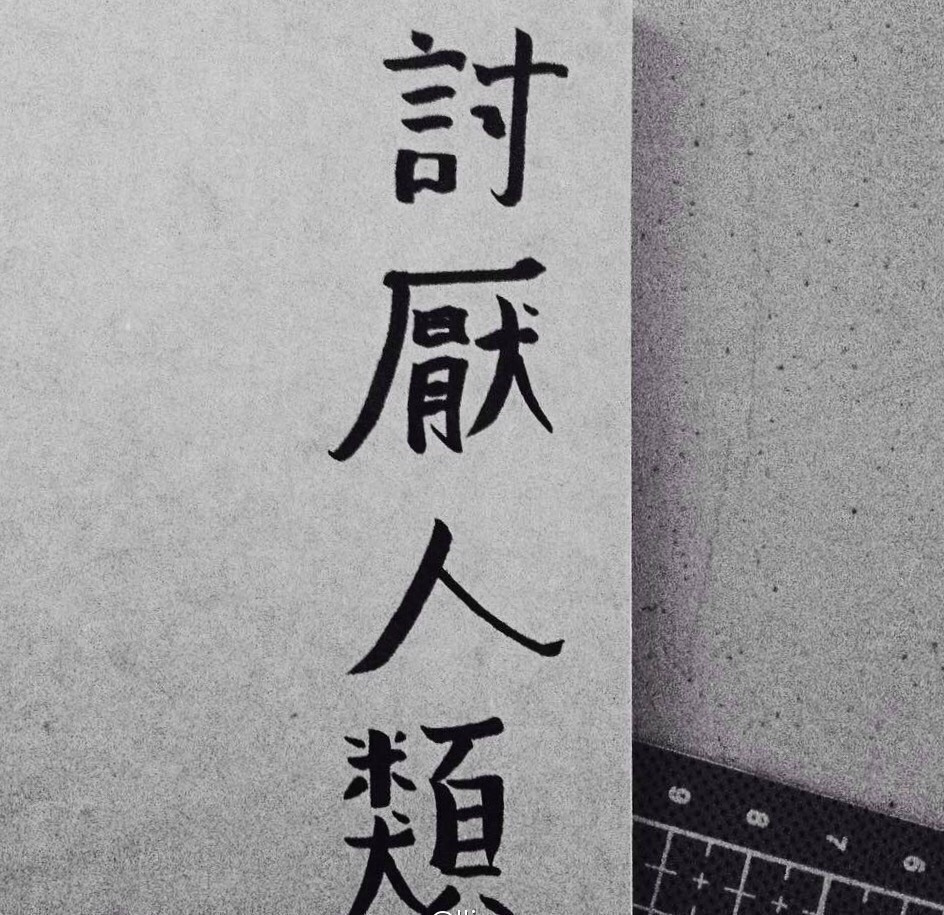 討厭人類
9 8 7 6